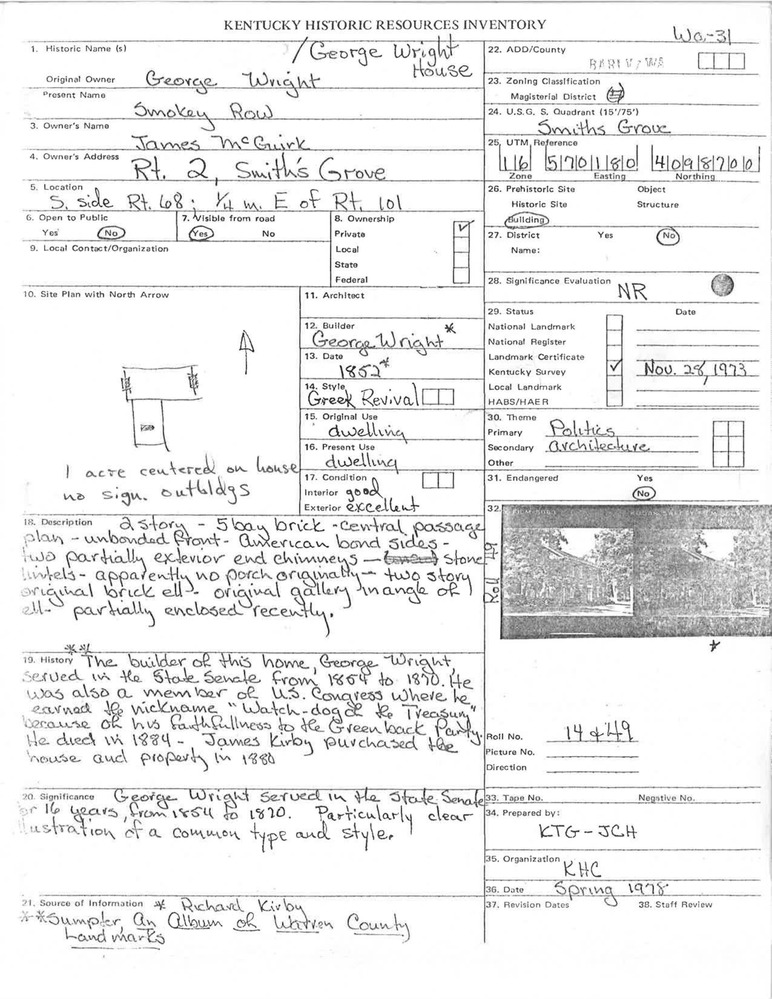 KENTUCKY HISTORIC RESOURCES INVENTORY
Wa-31
1. Historic Name (s)
/George Wright
House
Original Owner George Wright
Present Name
Smokey Row
3. Owner's Name
James McGuirk
4. Owner's Address
Rt. 2, Smith's Grove
5. Location
S. side Rt. 68; 1/4 m. E of Rt. 101
6. Open to Public
Yes No
7. Visible from road
Yes No
8. Ownership
Private
Local
State
Federal
9. Local Contact/Organization
10. Site Plan with North Arrow
1 acre centered on house
no sign. outbldgs
11. Architect
12. Builder *
George Wright
13. Date
1852*
14. Style
Greek Revival
15. Original Use
dwelling
16. Present Use
dwelling
17. Condition
Interior good
Exterior excellent
18. Description 2 story - 5 bay brick - central passage
plan - unbonded front - American bond sides -
two partially exterior end chimneys - stone
lintels - apparently no porch originally - two story
original brick ell - original gallery in angle of
ell - partially enclosed recently.
**
19. History The builder of this home, George Wright,
served in the State Senate from 1854 to 1870. He
was also a member of U.S. Congress where he
earned the nickname "Watch-dog of the Treasury"
because of his faithfullness to the Greenback Party.
He died in 1884 - James Kirby purchased the
house and property in 1880
20. Significance George Wright served in the State Senate
for 16 years, from 1854 to 1870. Particularly clear
illustration of a common type and style.
21. Source of Information * Richard Kirby
**Sumpter, An Album of Warren County
Landmarks
22. ADD/County
23. Zoning Classification
Magisterial District
24. U.S.G. S. Quadrant (15'/75')
Smiths Grove
25. UTM Reference
16 570180 4098700
Zone Easting Northing
26. Prehistoric Site Object
Historic Site Structure
Building
27. District Yes No
Name:
28. Significance Evaluation
NR
29. Status Date
National Landmark
National Register
Landmark Certificate
Kentucky Survey ✓ Nov. 28, 1973
Local Landmark
HABS/HAER
30. Theme
Primary Politics
Secondary architecture
Other
31. Endangered Yes
No
32.
Roll 49
*
Roll No. 14 & 49
Picture No.
Direction
33. Tape No. Negative No.
34. Prepared by:
KTG-JCH
35. Organization
KHC
36. Date Spring 1978
37. Revision Dates 38. Staff Review